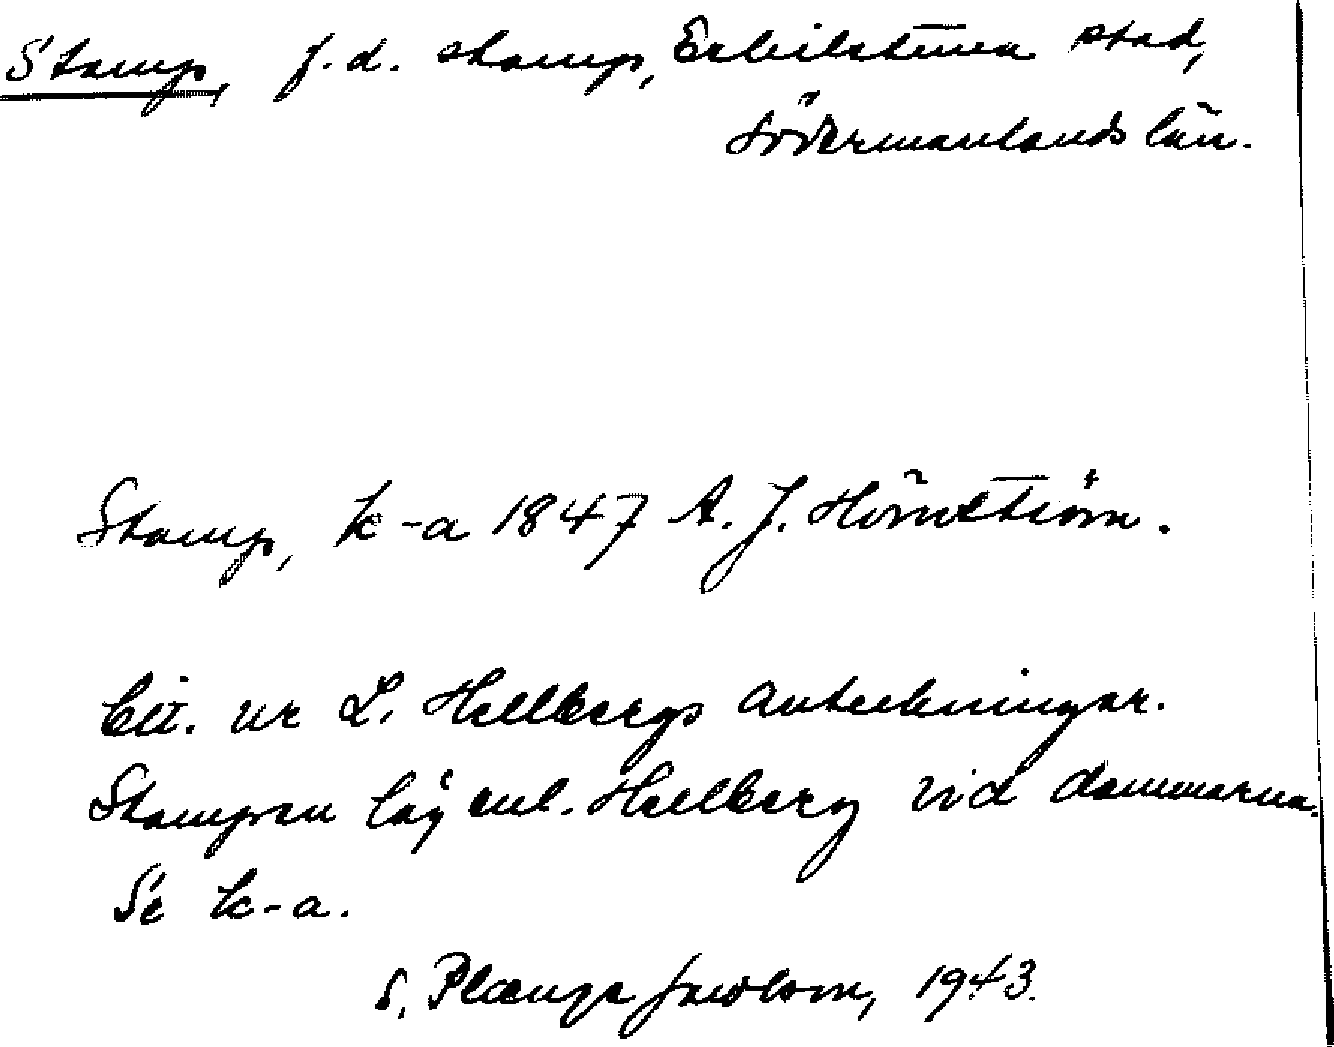 Stamp, f.d. stamp, Eskilstuna stad,
Södermanlands län.
Stamp, k-a 1847 A. J. Hörnström.
Cit. ur L. Hellbergs anteckningar.
Stampen låg enl. Hellberg vid dammarna.
Se k-a.
S. Plænge Jacobson, 1943.